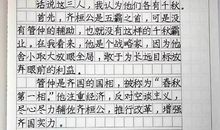 话说这三人，我认为他们各有千秋。
首先，齐桓公是五霸之首，可是没
有管仲的辅助，也就没有这样的千秋霸
业，在我看来，他是个战略家，因为他
舍小取大放眼全局，敢于为长远目标放
弃眼前的利益。
管仲是齐国的国相，被称为“春秋
第一相”他注重经济，反对空谈主义，
尽心尽力辅佐齐桓公，推行改革，增强
齐国实力。